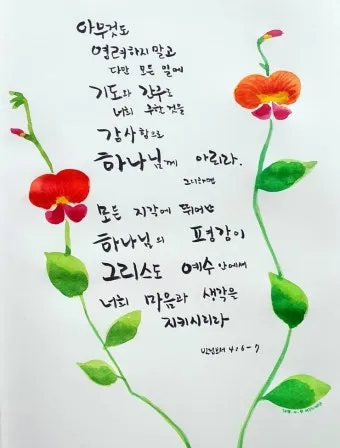 아무것도
염려하지 말고
다만 모든 일에
기도와 간구로
너희 구할 것을
감사함으로
하나님께 아뢰라.
그리하면
모든 지각에 뛰어난
하나님의 평강이
그리스도 예수 안에서
너희 마음과 생각을
지키시리라
빌립보서 4:6-7